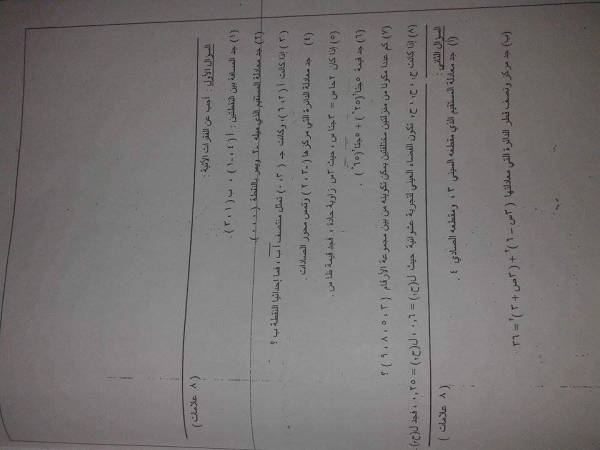 السؤال الأول : أجب عن الفقرات الآتية : ( ٨ علامات )
(١) جد المسافة بين النقطتين : أ ( ٤ ، -١ ) ، ب ( ١ ، ٣ ) .
(٢) جد معادلة المستقيم الذي ميله -٢ ويمر بالنقطة ( ٠ ، ٠ )
(٣) إذا كانت أ ( ٢ ، ٦ ) ، وكانت جـ ( ٢ ، ٠ ) تمثل منتصف أ ب ، فما إحداثيا النقطة ب ؟
(٤) جد معادلة الدائرة التي مركزها ( -٣ ، ٢ ) وتمس محور الصادات .
(٥) إذا كان ٢جا س = ٣جتا س ، حيث س زاوية حادة ، فجد قيمة ظا س .
(٦) جد قيمة ٥جتا²(٢٥°) + ٥جتا²(٦٥°) .
(٧) كم عددا مكونا من منزلتين مختلفتين يمكن تكوينه من بين مجموعة الأرقام { ٣ ، ٥ ، ٨ ، ٩ } ؟
(٨) إذا كانت ح١ ، ح٢ ، ح٣ تكون الفضاء العيني لتجربة عشوائية حيث ل(ح١) = ٠,٦ ، ل(ح٢) = ٠,٢٥ ، فجد ل(ح٣) .
السؤال الثاني : ( ٨ علامات )
(أ) جد معادلة المستقيم الذي مقطعه السيني ٣ ، ومقطعه الصادي ٤ .
(ب) جد مركز ونصف قطر الدائرة التي معادلتها (٢س - ٦)² + (٢ص + ٢)² = ٣٦